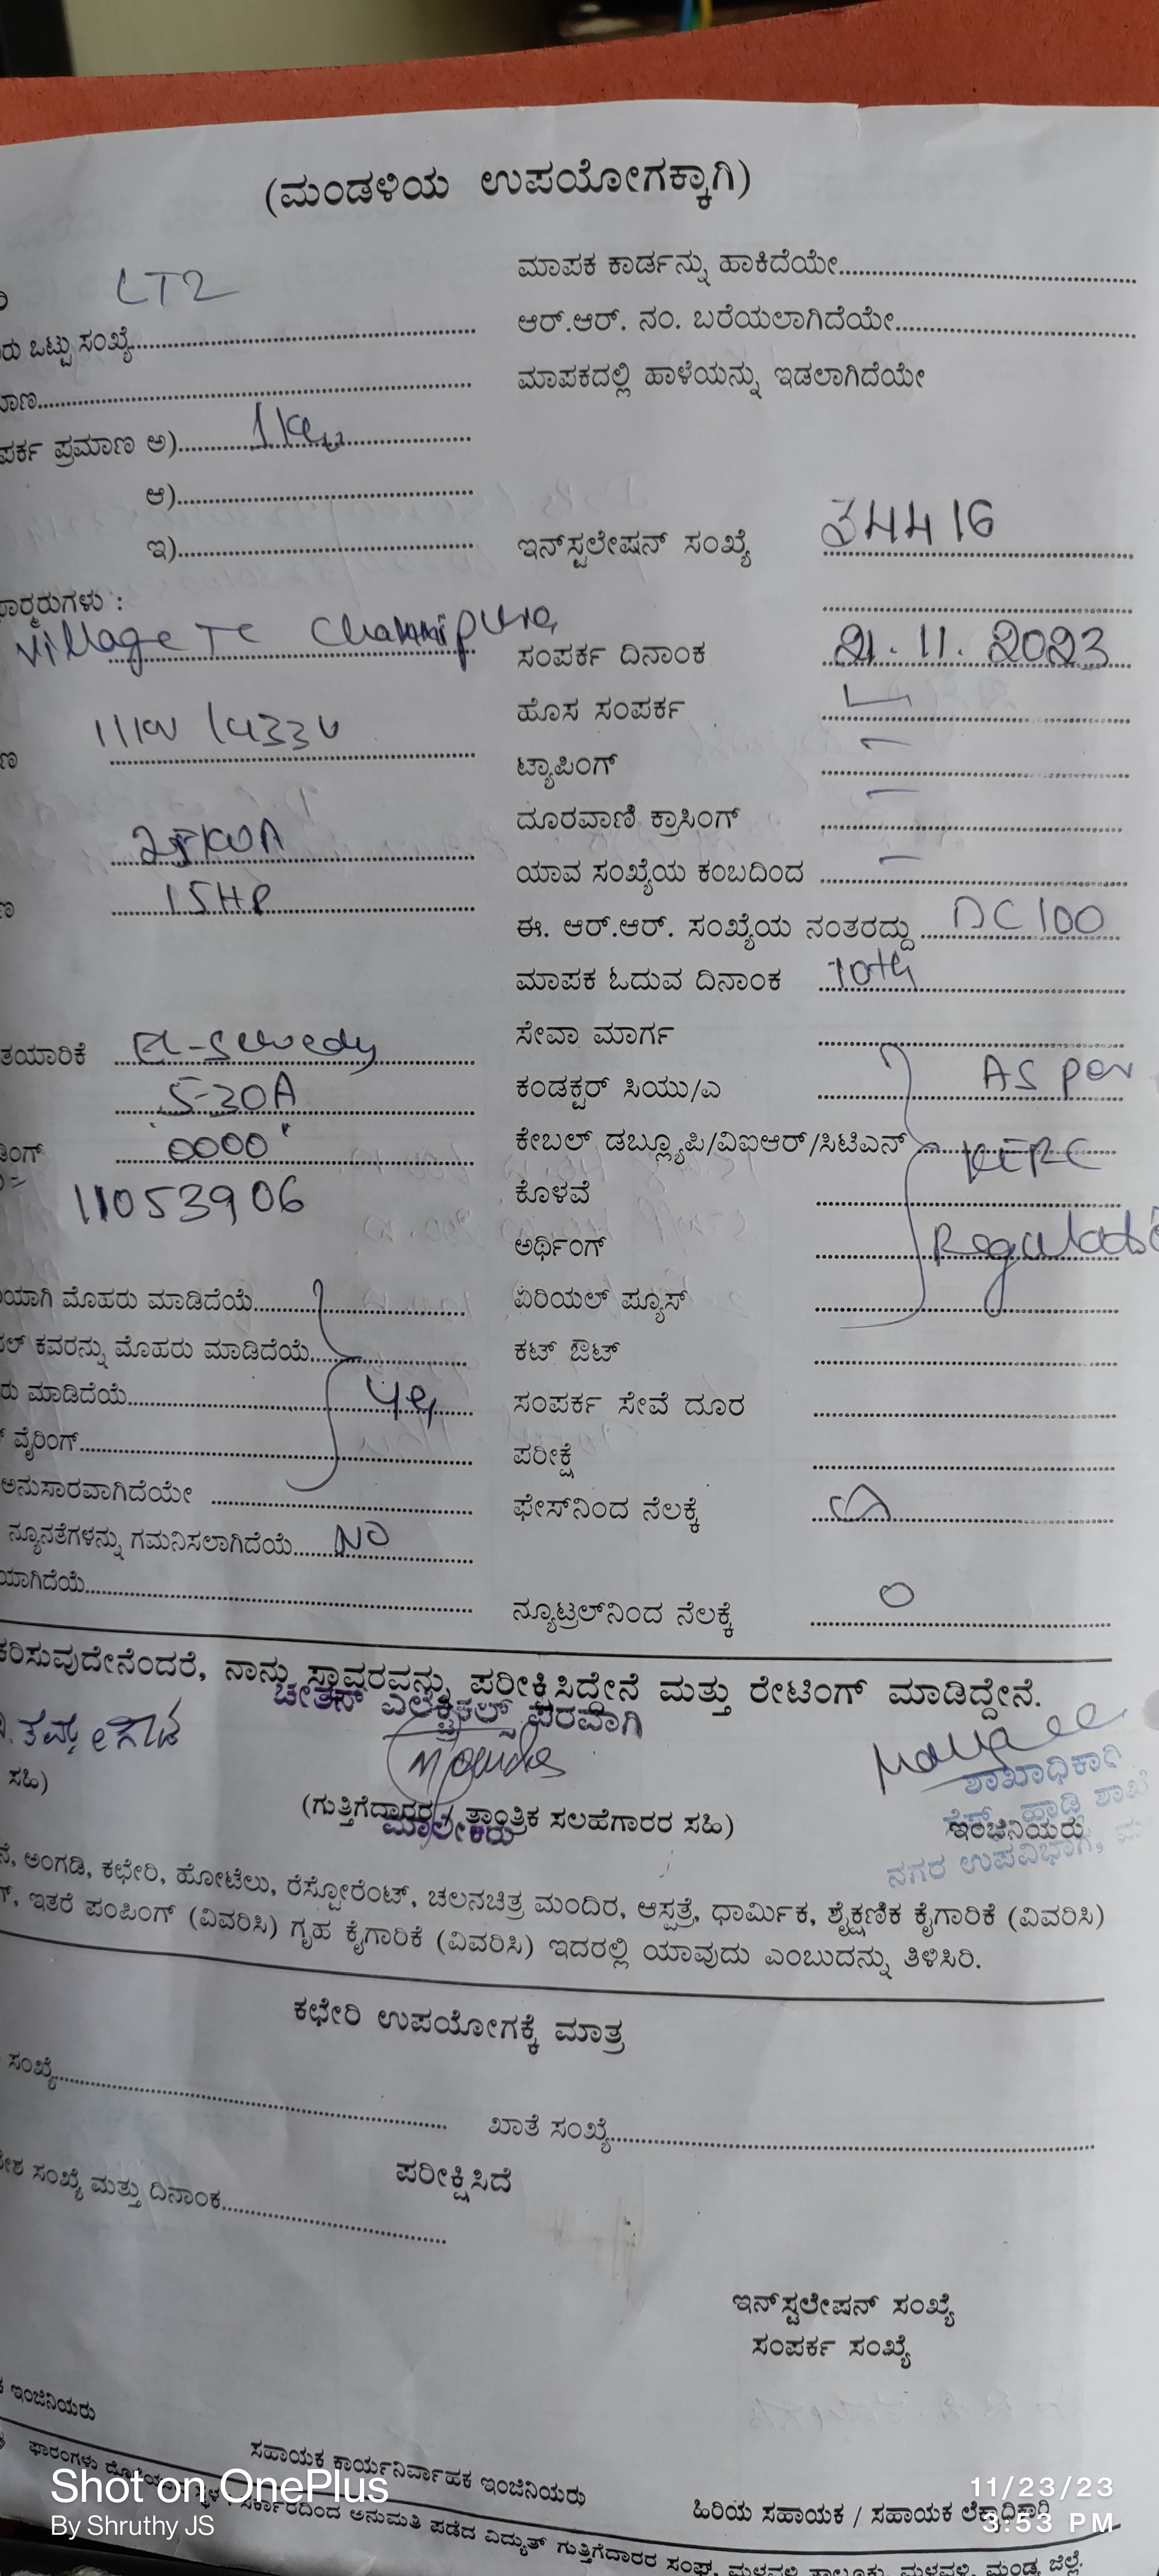 (ಮಂಡಳಿಯ ಉಪಯೋಗಕ್ಕಾಗಿ)
LT2
ಮಾಪಕ ಕಾರ್ಡನ್ನು ಹಾಕಿದೆಯೇ
ರು ಒಟ್ಟು ಸಂಖ್ಯೆ
ಆರ್.ಆರ್. ನಂ. ಬರೆಯಲಾಗಿದೆಯೇ
ಮಾಪಕದಲ್ಲಿ ಹಾಳೆಯನ್ನು ಇಡಲಾಗಿದೆಯೇ
ಪರ್ಕ ಪ್ರಮಾಣ ಅ)
ಆ)
ಇ)
ಇನ್‌ಸ್ಟಲೇಷನ್ ಸಂಖ್ಯೆ 34416
ಫಾರ್ಮರುಗಳು :
Village TC Channipura
ಸಂಪರ್ಕ ದಿನಾಂಕ 21.11.2023
ಹೊಸ ಸಂಪರ್ಕ
11KV /433V
ಟ್ಯಾಪಿಂಗ್
ದೂರವಾಣಿ ಕ್ರಾಸಿಂಗ್
25KVA
ಯಾವ ಸಂಖ್ಯೆಯ ಕಂಬದಿಂದ
15HP
ಈ. ಆರ್.ಆರ್. ಸಂಖ್ಯೆಯ ನಂತರದ್ದು DC100
ಮಾಪಕ ಓದುವ ದಿನಾಂಕ 10th
ಸೇವಾ ಮಾರ್ಗ
ತಯಾರಿಕೆ El-Sewedy
ಕಂಡಕ್ಟರ್ ಸಿಯು/ಎ As per
5-30A
ಕೇಬಲ್ ಡಬ್ಲ್ಯೂಪಿ/ವಿಐಆರ್/ಸಿಟಿಎನ್ KERC
ಡಿಂಗ್ 0000
ಕೊಳವೆ
11053906
ಅರ್ಥಿಂಗ್
ಯಾಗಿ ಮೊಹರು ಮಾಡಿದೆಯೆ
ಏರಿಯಲ್ ಪ್ಯೂಸ್
ಲ್ ಕವರನ್ನು ಮೊಹರು ಮಾಡಿದೆಯೆ
ಕಟ್ ಔಟ್
ರು ಮಾಡಿದೆಯೆ
ಸಂಪರ್ಕ ಸೇವೆ ದೂರ
ವೈರಿಂಗ್
ಪರೀಕ್ಷೆ
ಅನುಸಾರವಾಗಿದೆಯೇ
ಫೇಸ್‌ನಿಂದ ನೆಲಕ್ಕೆ
ನ್ಯೂನತೆಗಳನ್ನು ಗಮನಿಸಲಾಗಿದೆಯೆ NO
ಯಾಗಿದೆಯೆ
ನ್ಯೂಟ್ರಲ್‌ನಿಂದ ನೆಲಕ್ಕೆ 0
ಕರಿಸುವುದೇನೆಂದರೆ, ನಾನು ಸ್ಥಾವರವನ್ನು ಪರೀಕ್ಷಿಸಿದ್ದೇನೆ ಮತ್ತು ರೇಟಿಂಗ್ ಮಾಡಿದ್ದೇನೆ.
ಚೇತನ್ ಎಲೆಕ್ಟ್ರಿಕಲ್ಸ್ ಪರವಾಗಿ
ಶಾಖಾಧಿಕಾರಿ
ಸಹಿ)
(ಗುತ್ತಿಗೆದಾರರ / ತಾಂತ್ರಿಕ ಸಲಹೆಗಾರರ ಸಹಿ)
ಮಾಲೀಕರು
ಇಂಜಿನಿಯರು
ನಗರ ಉಪವಿಭಾಗ,
ನೆ, ಅಂಗಡಿ, ಕಛೇರಿ, ಹೋಟೆಲು, ರೆಸ್ಟೋರೆಂಟ್, ಚಲನಚಿತ್ರ ಮಂದಿರ, ಆಸ್ಪತ್ರೆ, ಧಾರ್ಮಿಕ, ಶೈಕ್ಷಣಿಕ ಕೈಗಾರಿಕೆ (ವಿವರಿಸಿ)
ಗ್, ಇತರೆ ಪಂಪಿಂಗ್ (ವಿವರಿಸಿ) ಗೃಹ ಕೈಗಾರಿಕೆ (ವಿವರಿಸಿ) ಇದರಲ್ಲಿ ಯಾವುದು ಎಂಬುದನ್ನು ತಿಳಿಸಿರಿ.
ಕಛೇರಿ ಉಪಯೋಗಕ್ಕೆ ಮಾತ್ರ
ಸಂಖ್ಯೆ
ಖಾತೆ ಸಂಖ್ಯೆ
ಪರೀಕ್ಷಿಸಿದೆ
ಶ ಸಂಖ್ಯೆ ಮತ್ತು ದಿನಾಂಕ
ಇನ್‌ಸ್ಟಲೇಷನ್ ಸಂಖ್ಯೆ
ಸಂಪರ್ಕ ಸಂಖ್ಯೆ
ಇಂಜಿನಿಯರು
ಸಹಾಯಕ ಕಾರ್ಯನಿರ್ವಾಹಕ ಇಂಜಿನಿಯರು
ಹಿರಿಯ ಸಹಾಯಕ / ಸಹಾಯಕ ಲೆಕ್ಕಾಧಿಕಾರಿ
ಫಾರಂಗಳು ದೊರೆಯುವ ಸ್ಥಳ : ಸರ್ಕಾರದಿಂದ ಅನುಮತಿ ಪಡೆದ ವಿದ್ಯುತ್ ಗುತ್ತಿಗೆದಾರರ ಸಂಘ, ಮಳವಳ್ಳಿ ತಾಲ್ಲೂಕು, ಮಳವಳ್ಳಿ, ಮಂಡ್ಯ ಜಿಲ್ಲೆ.
Shot on OnePlus
By Shruthy JS
11/23/23
3:53 PM